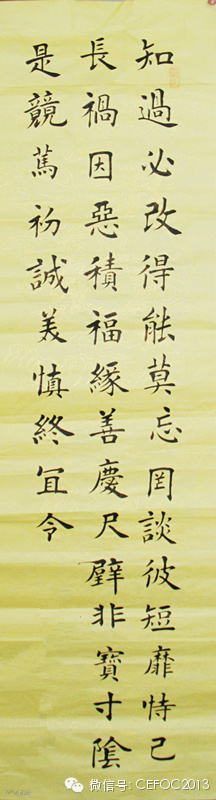 知過必改得能莫忘罔談彼短靡恃己
長禍因惡積福緣善慶尺璧非寶寸陰
是競篤初誠美慎終宜令
微信号: CEFOC2013